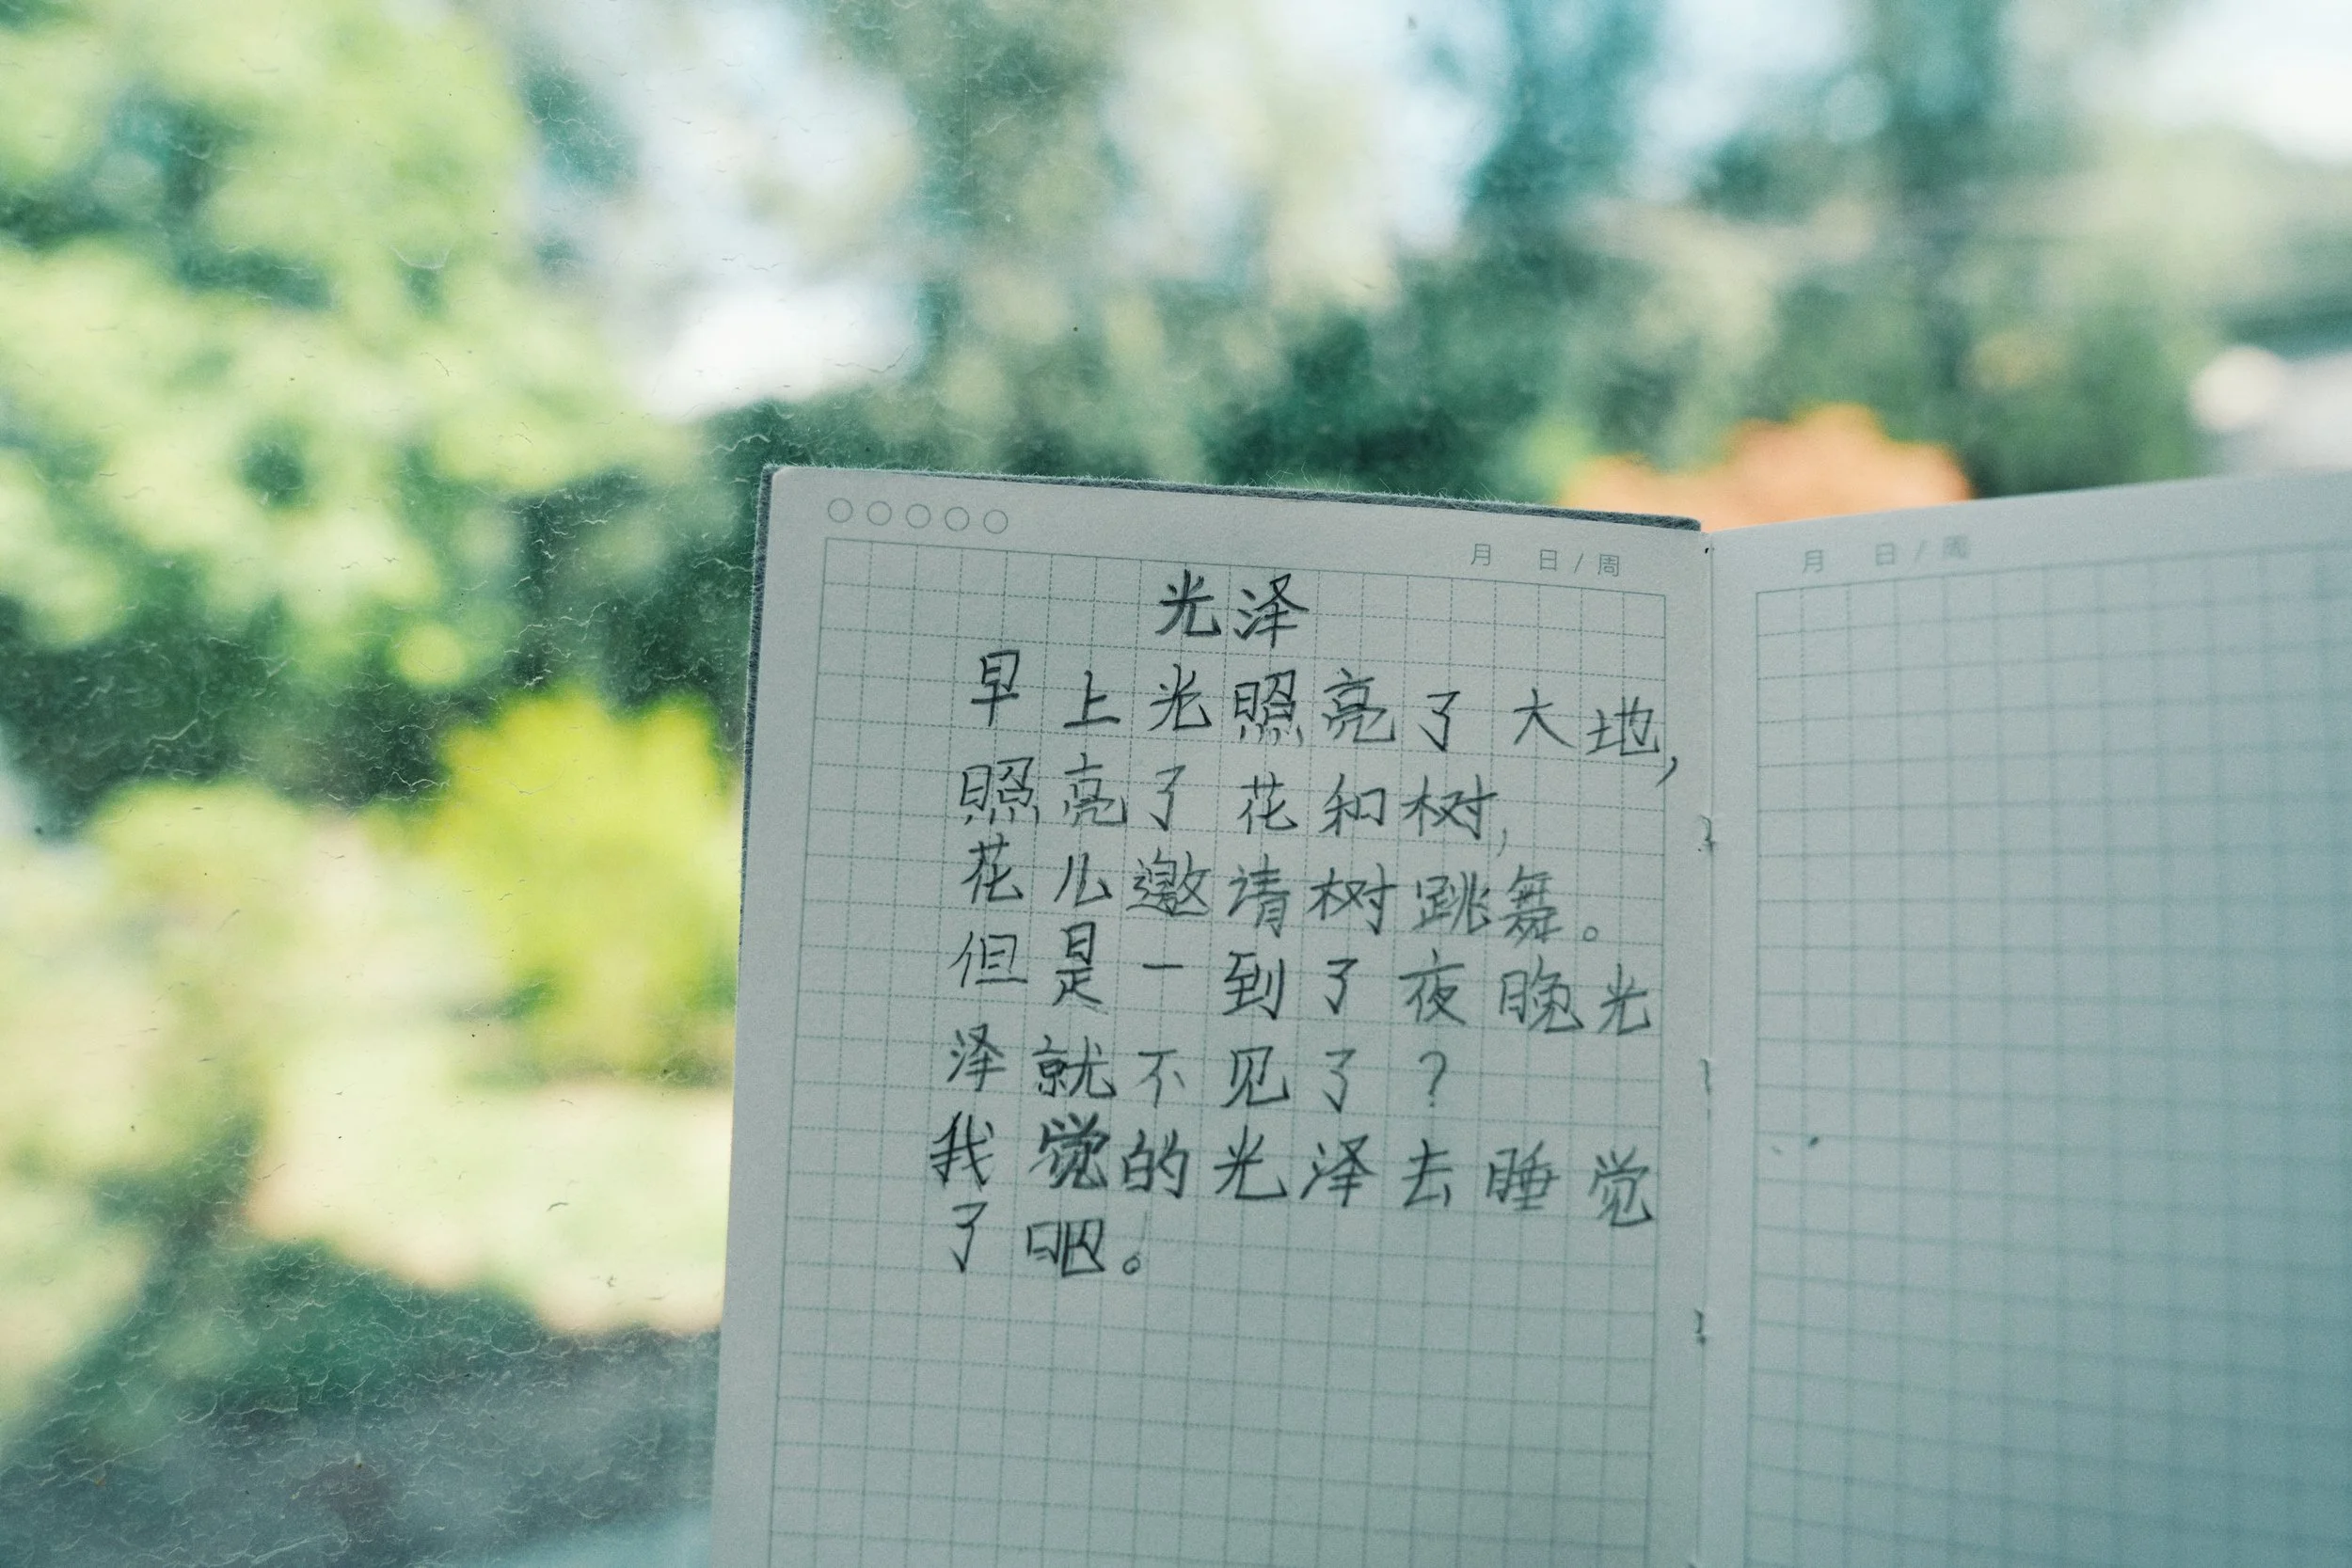 月 日/周
月 日/周
光泽
早上光照亮了大地,
照亮了花和树,
花儿邀请树跳舞。
但是一到了夜晚光
泽就不见了?
我觉的光泽去睡觉
了吧。